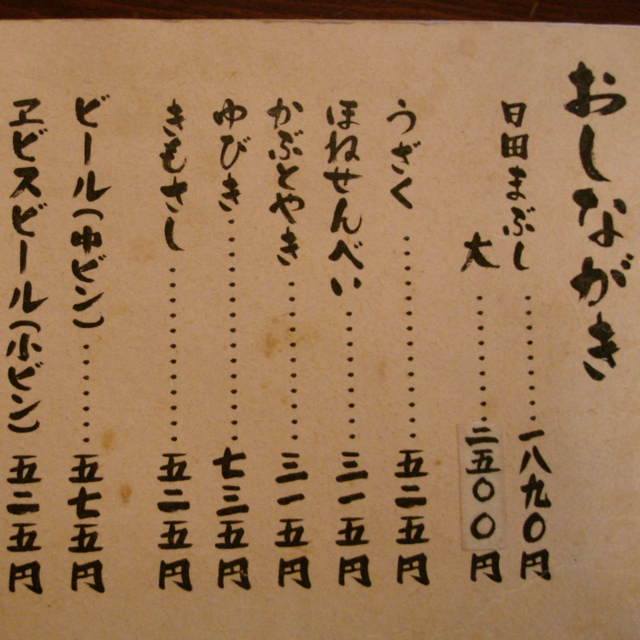 おしながき
日田まぶし……一八九〇円
大……二五〇〇円
うざく……五二五円
ほねせんべい……三一五円
かぶとやき……三一五円
ゆびき……七三五円
きもさし……五二五円
ビール(中ビン)……五七五円
ヱビスビール(小ビン)五二五円